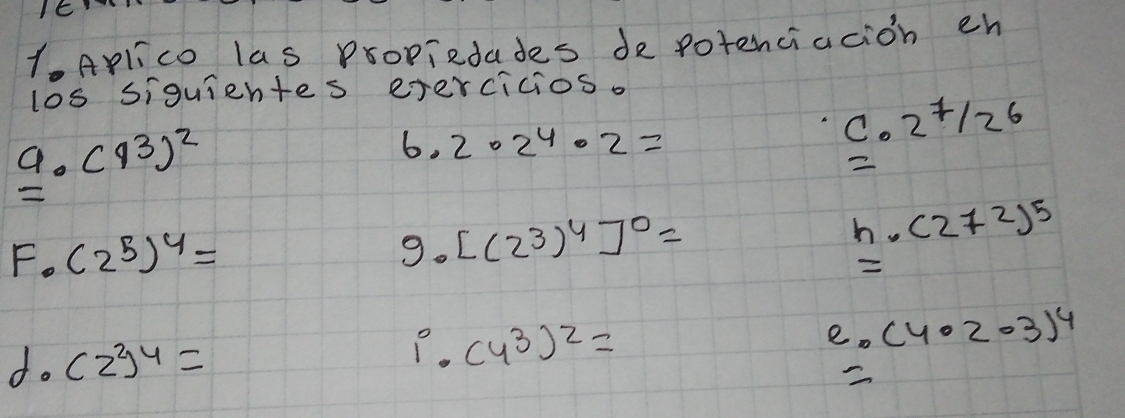 1. Aplico las propiedades de potenciación en
los siguientes exercicios.
a. (1³)² =
b. 2 • 2⁴ • 2 =
c. 2⁷/2⁶ =
F. (2⁵)⁴ =
g. [(2³)⁴]⁰ =
h. (2+2)⁵ =
d. (2²)⁴ =
i. (4³)² =
e. (4•2•3)⁴ =